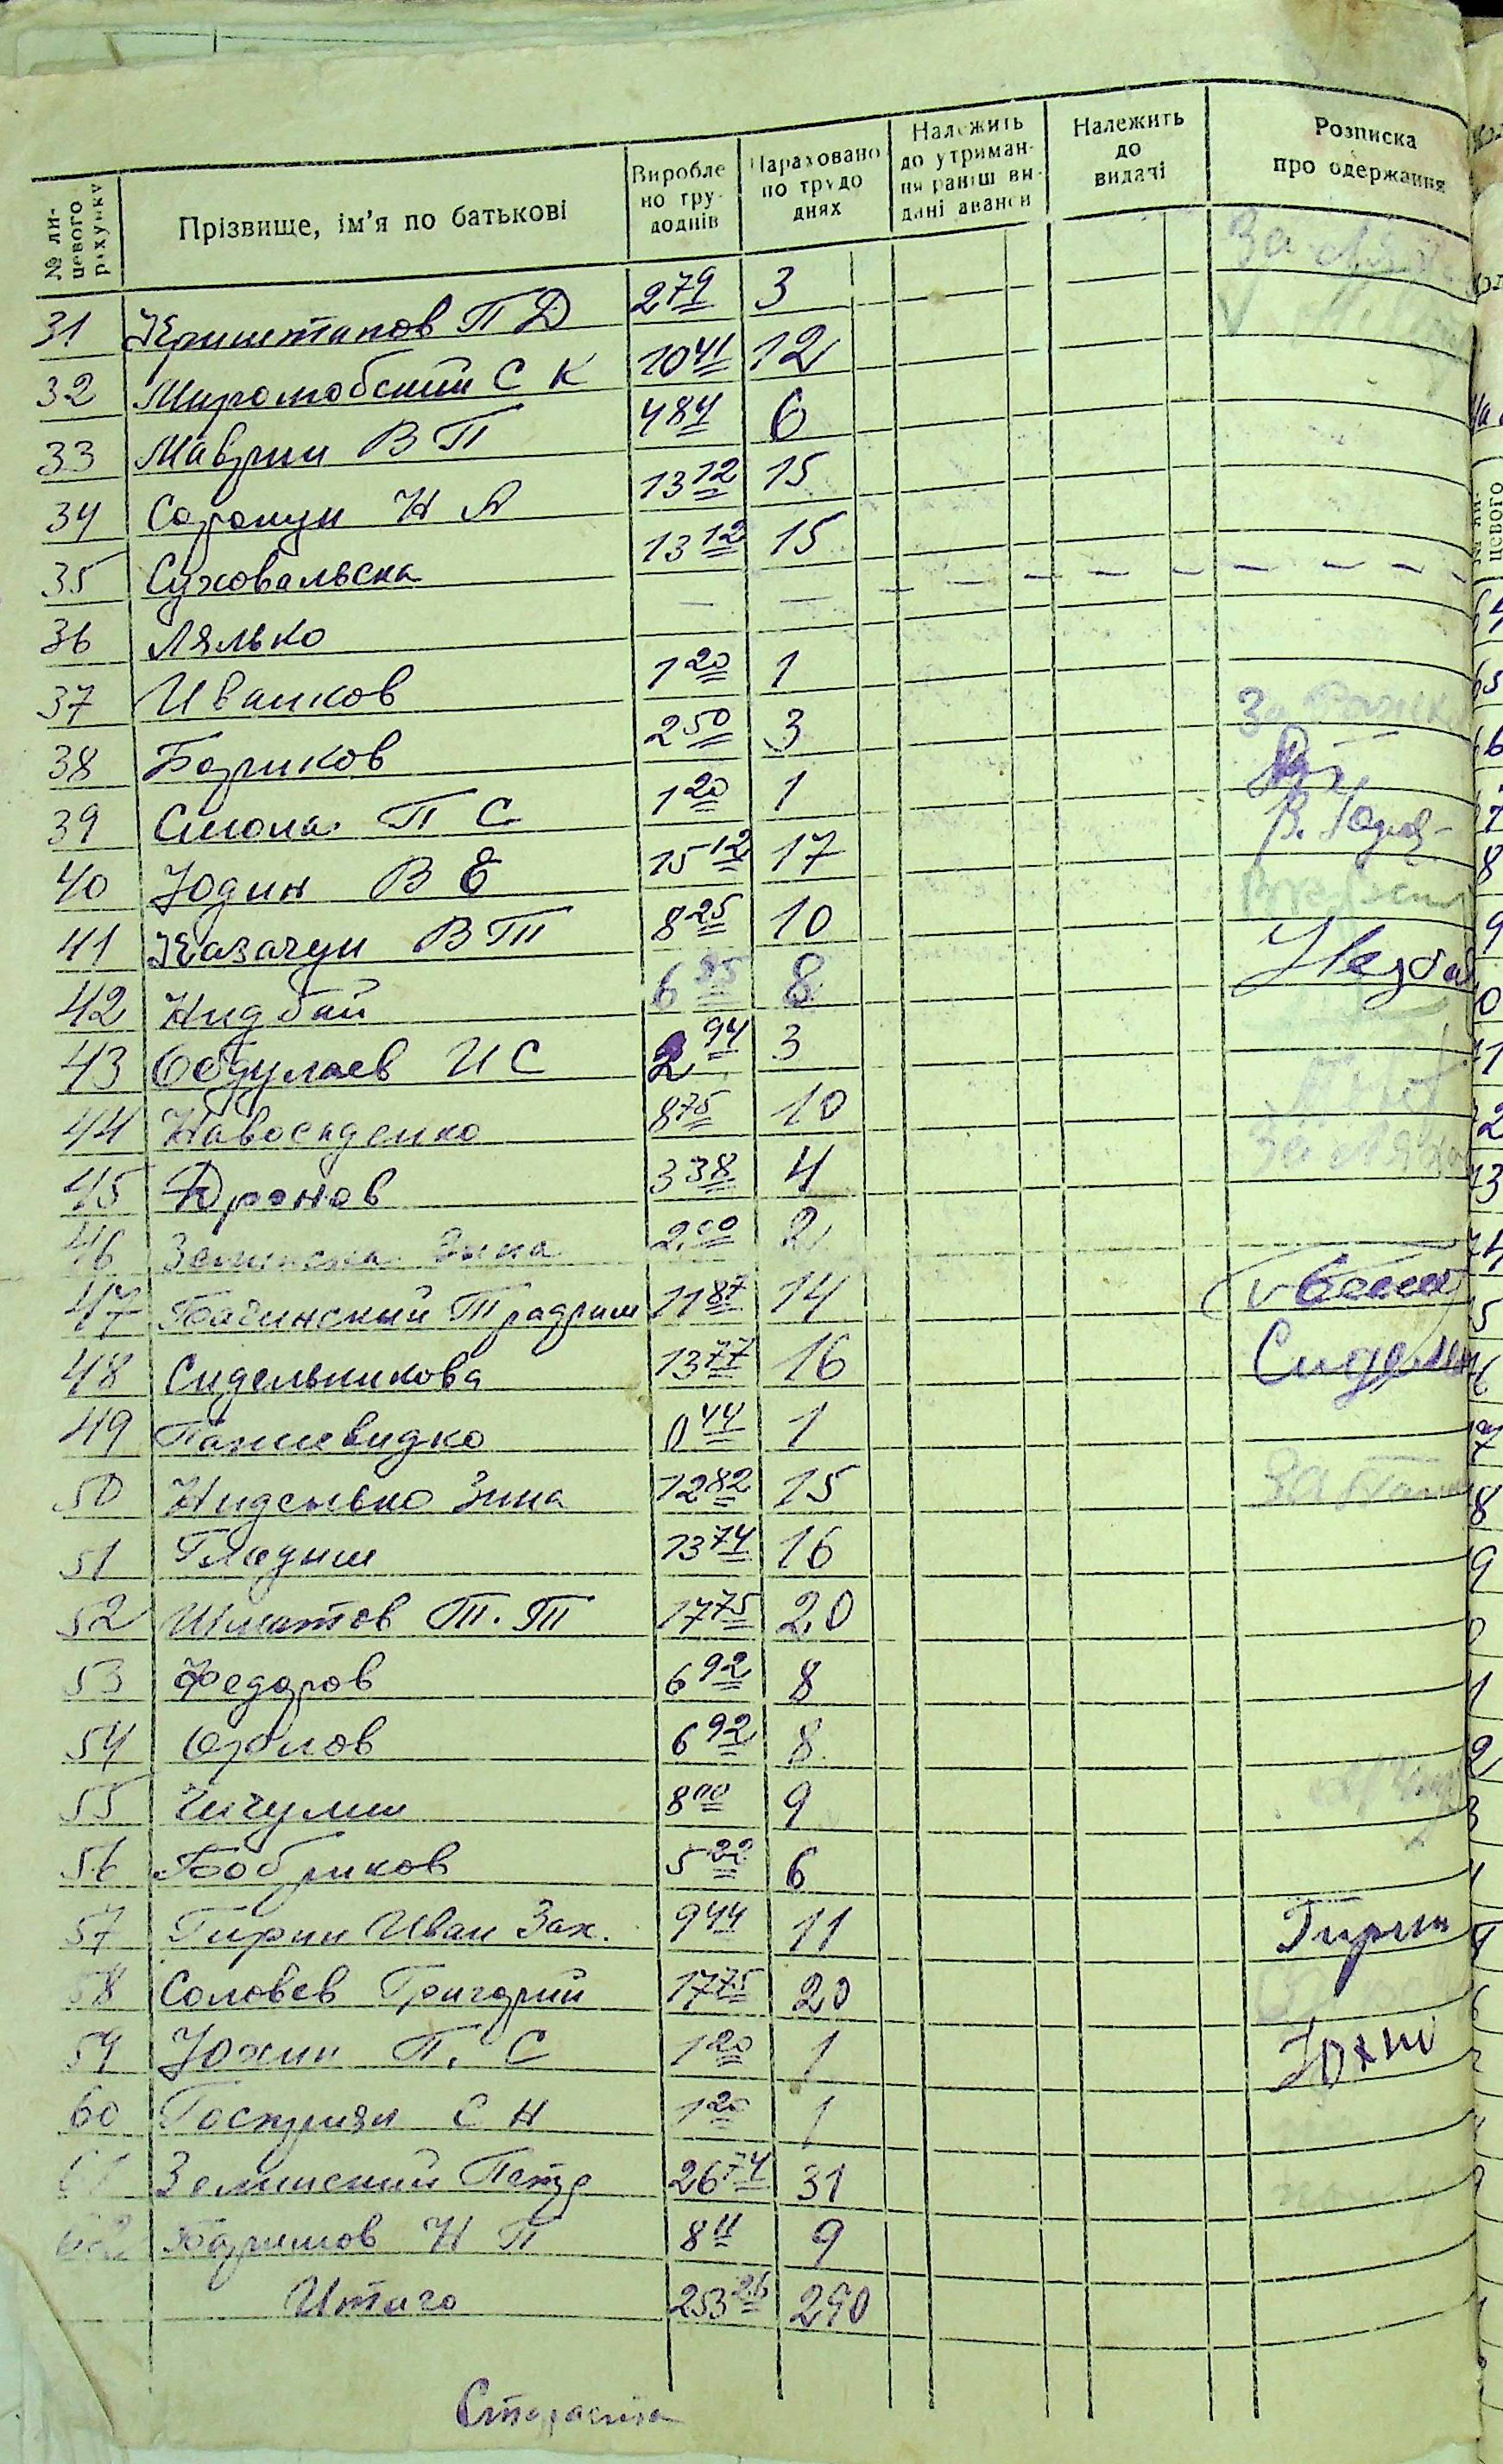 № ли-
цевого
рахунку
Прізвище, ім'я по батькові
Виробле
но тру-
доднів
Нараховано
по трудо
днях
Належить
до утриман-
ня раніш ви-
дані аванси
Належить
до
видачі
Розписка
про одержання
31 Криштапов П Д 2 79 3 За
32 С К 10 41 12
33 Маврин В П 4 84 6
34 Сорокун Н Я 13 12 15
35 Суховальска 13 12 15
36 Лялько — — — — — — — — — —
37 Иванков 1 20 1
38 Бориков 2 50 3 За
39 Смола П С 1 20 1
40 Юдин В Е 15 12 17 В. Юдин
41 Казачун В Т 8 25 10
42 Нидбай 6 85 8
43 Обдулаев И С 2 94 3
44 8 75 10
45 Дронов 3 38 4 За
46 Зина 2.00 2
47 Бачинский 11 87 14
48 Сидельникова 13 77 16 Сидельн
49 0 44 1
50 Зина 12 82 15 За
51 Гладыш 13 74 16
52 Шматов Т. Т 17 75 20
53 Федоров 6 92 8
54 Орлов 6 92 8
55 Чичулин 8 00 9
56 Бобриков 5 22 6
57 Гирин Иван Зах. 9 44 11 Гирин
58 Соловев Григорий 17 75 20
59 Юхин П. С 1 20 1 Юхин
60 С Н 1 20 1
61 Земинский Петр 26 74 31
62 Н П 8 11 9
Итого 253 26 290